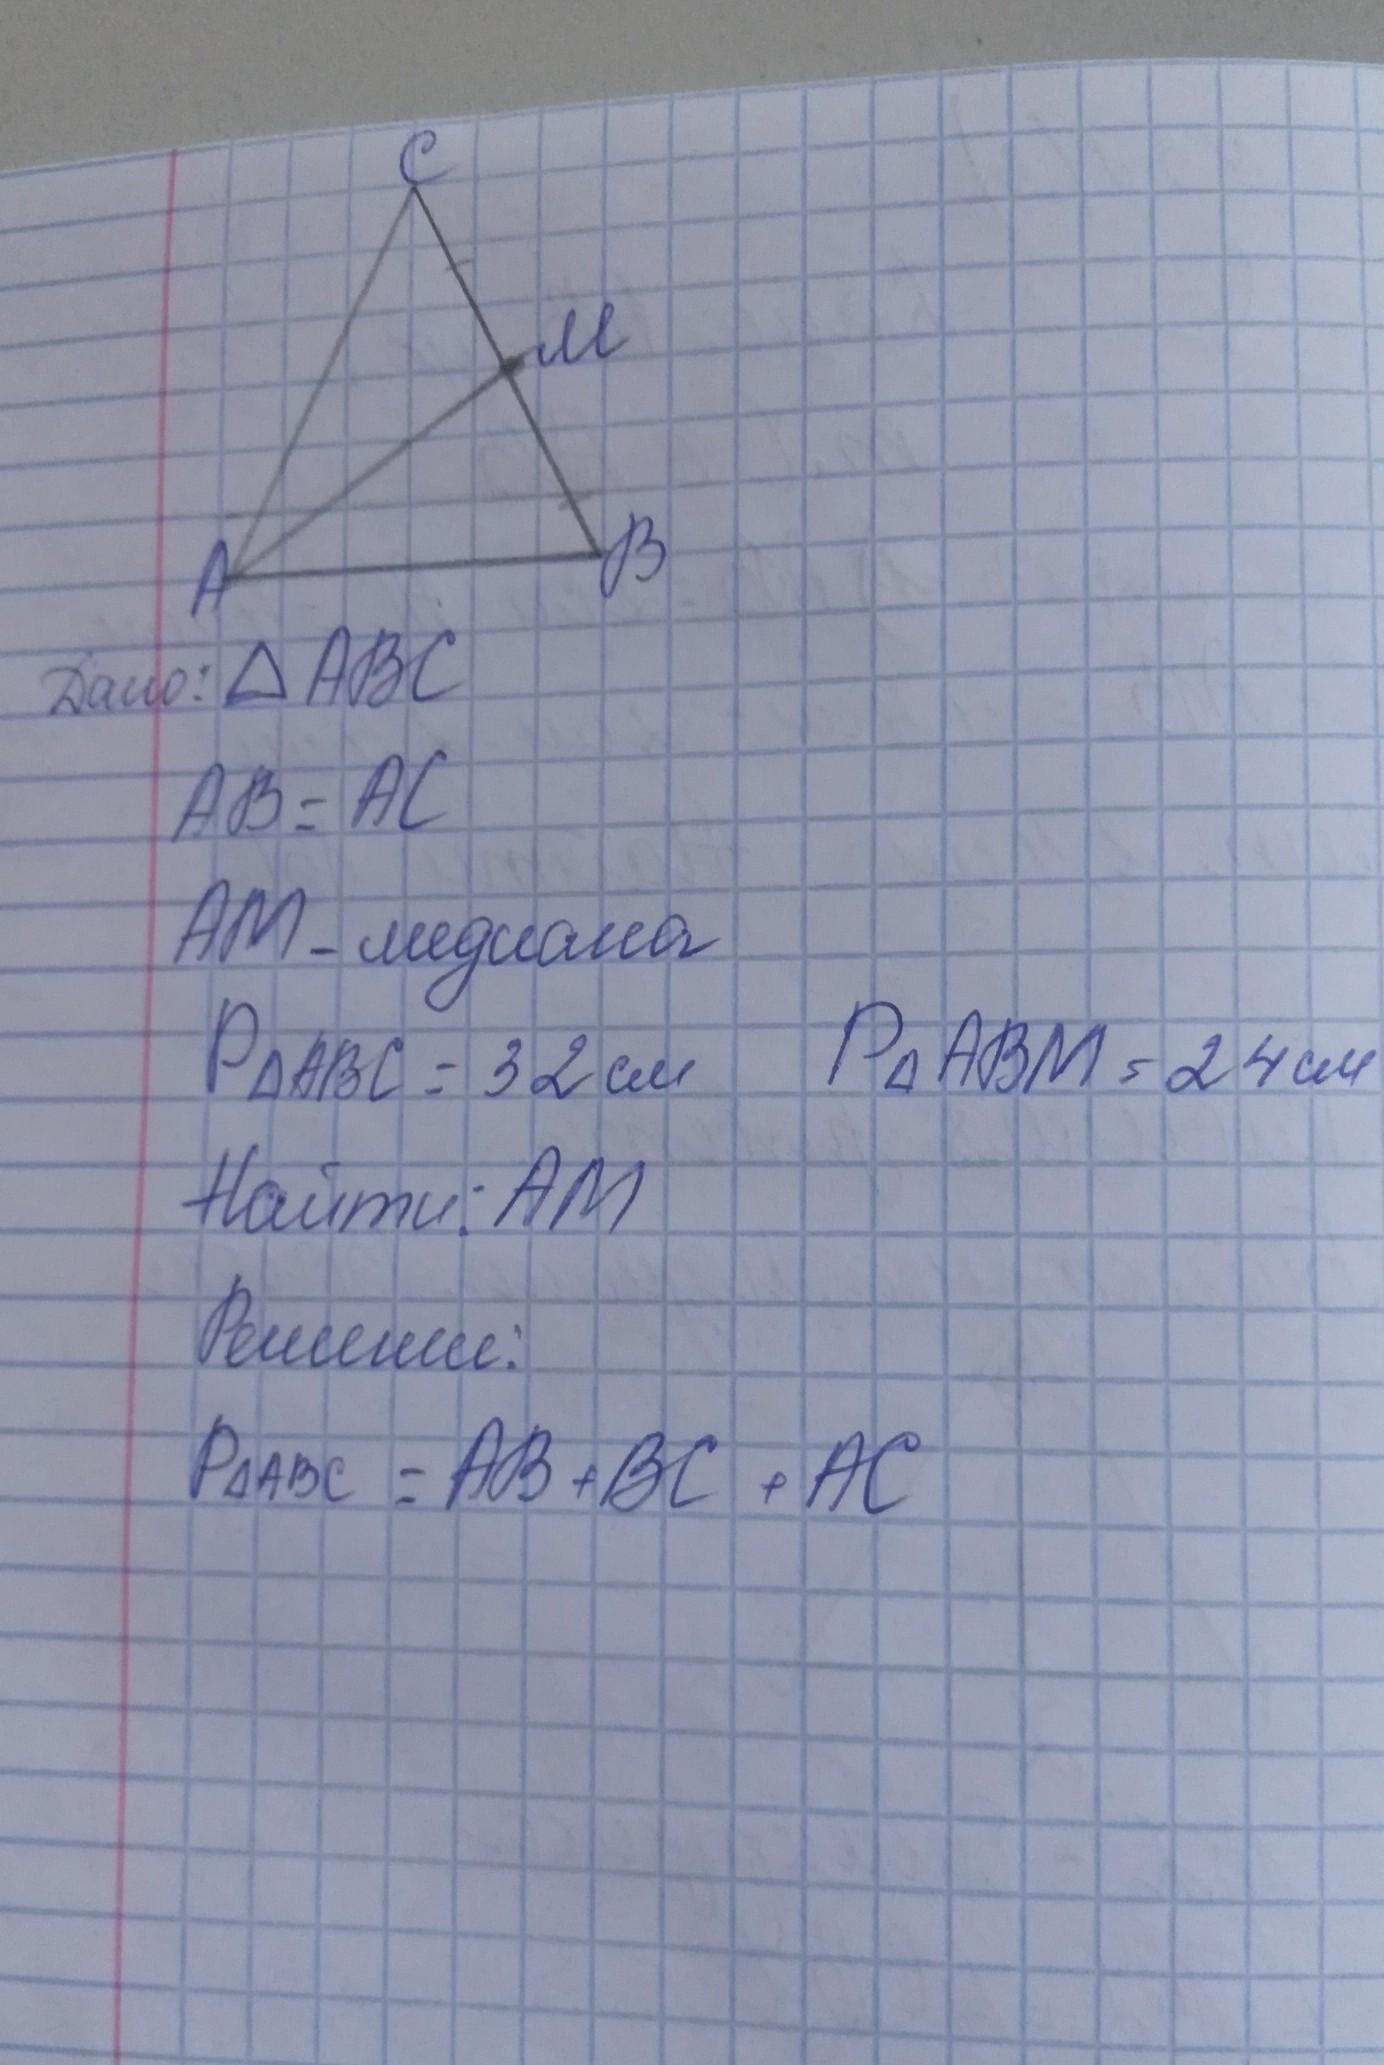 C
M
A
B
Дано: △ ABC
AB = AC
AM - медиана
P△ABC = 32 см P△ABM = 24 см
Найти: AM
Решение:
P△ABC = AB + BC + AC